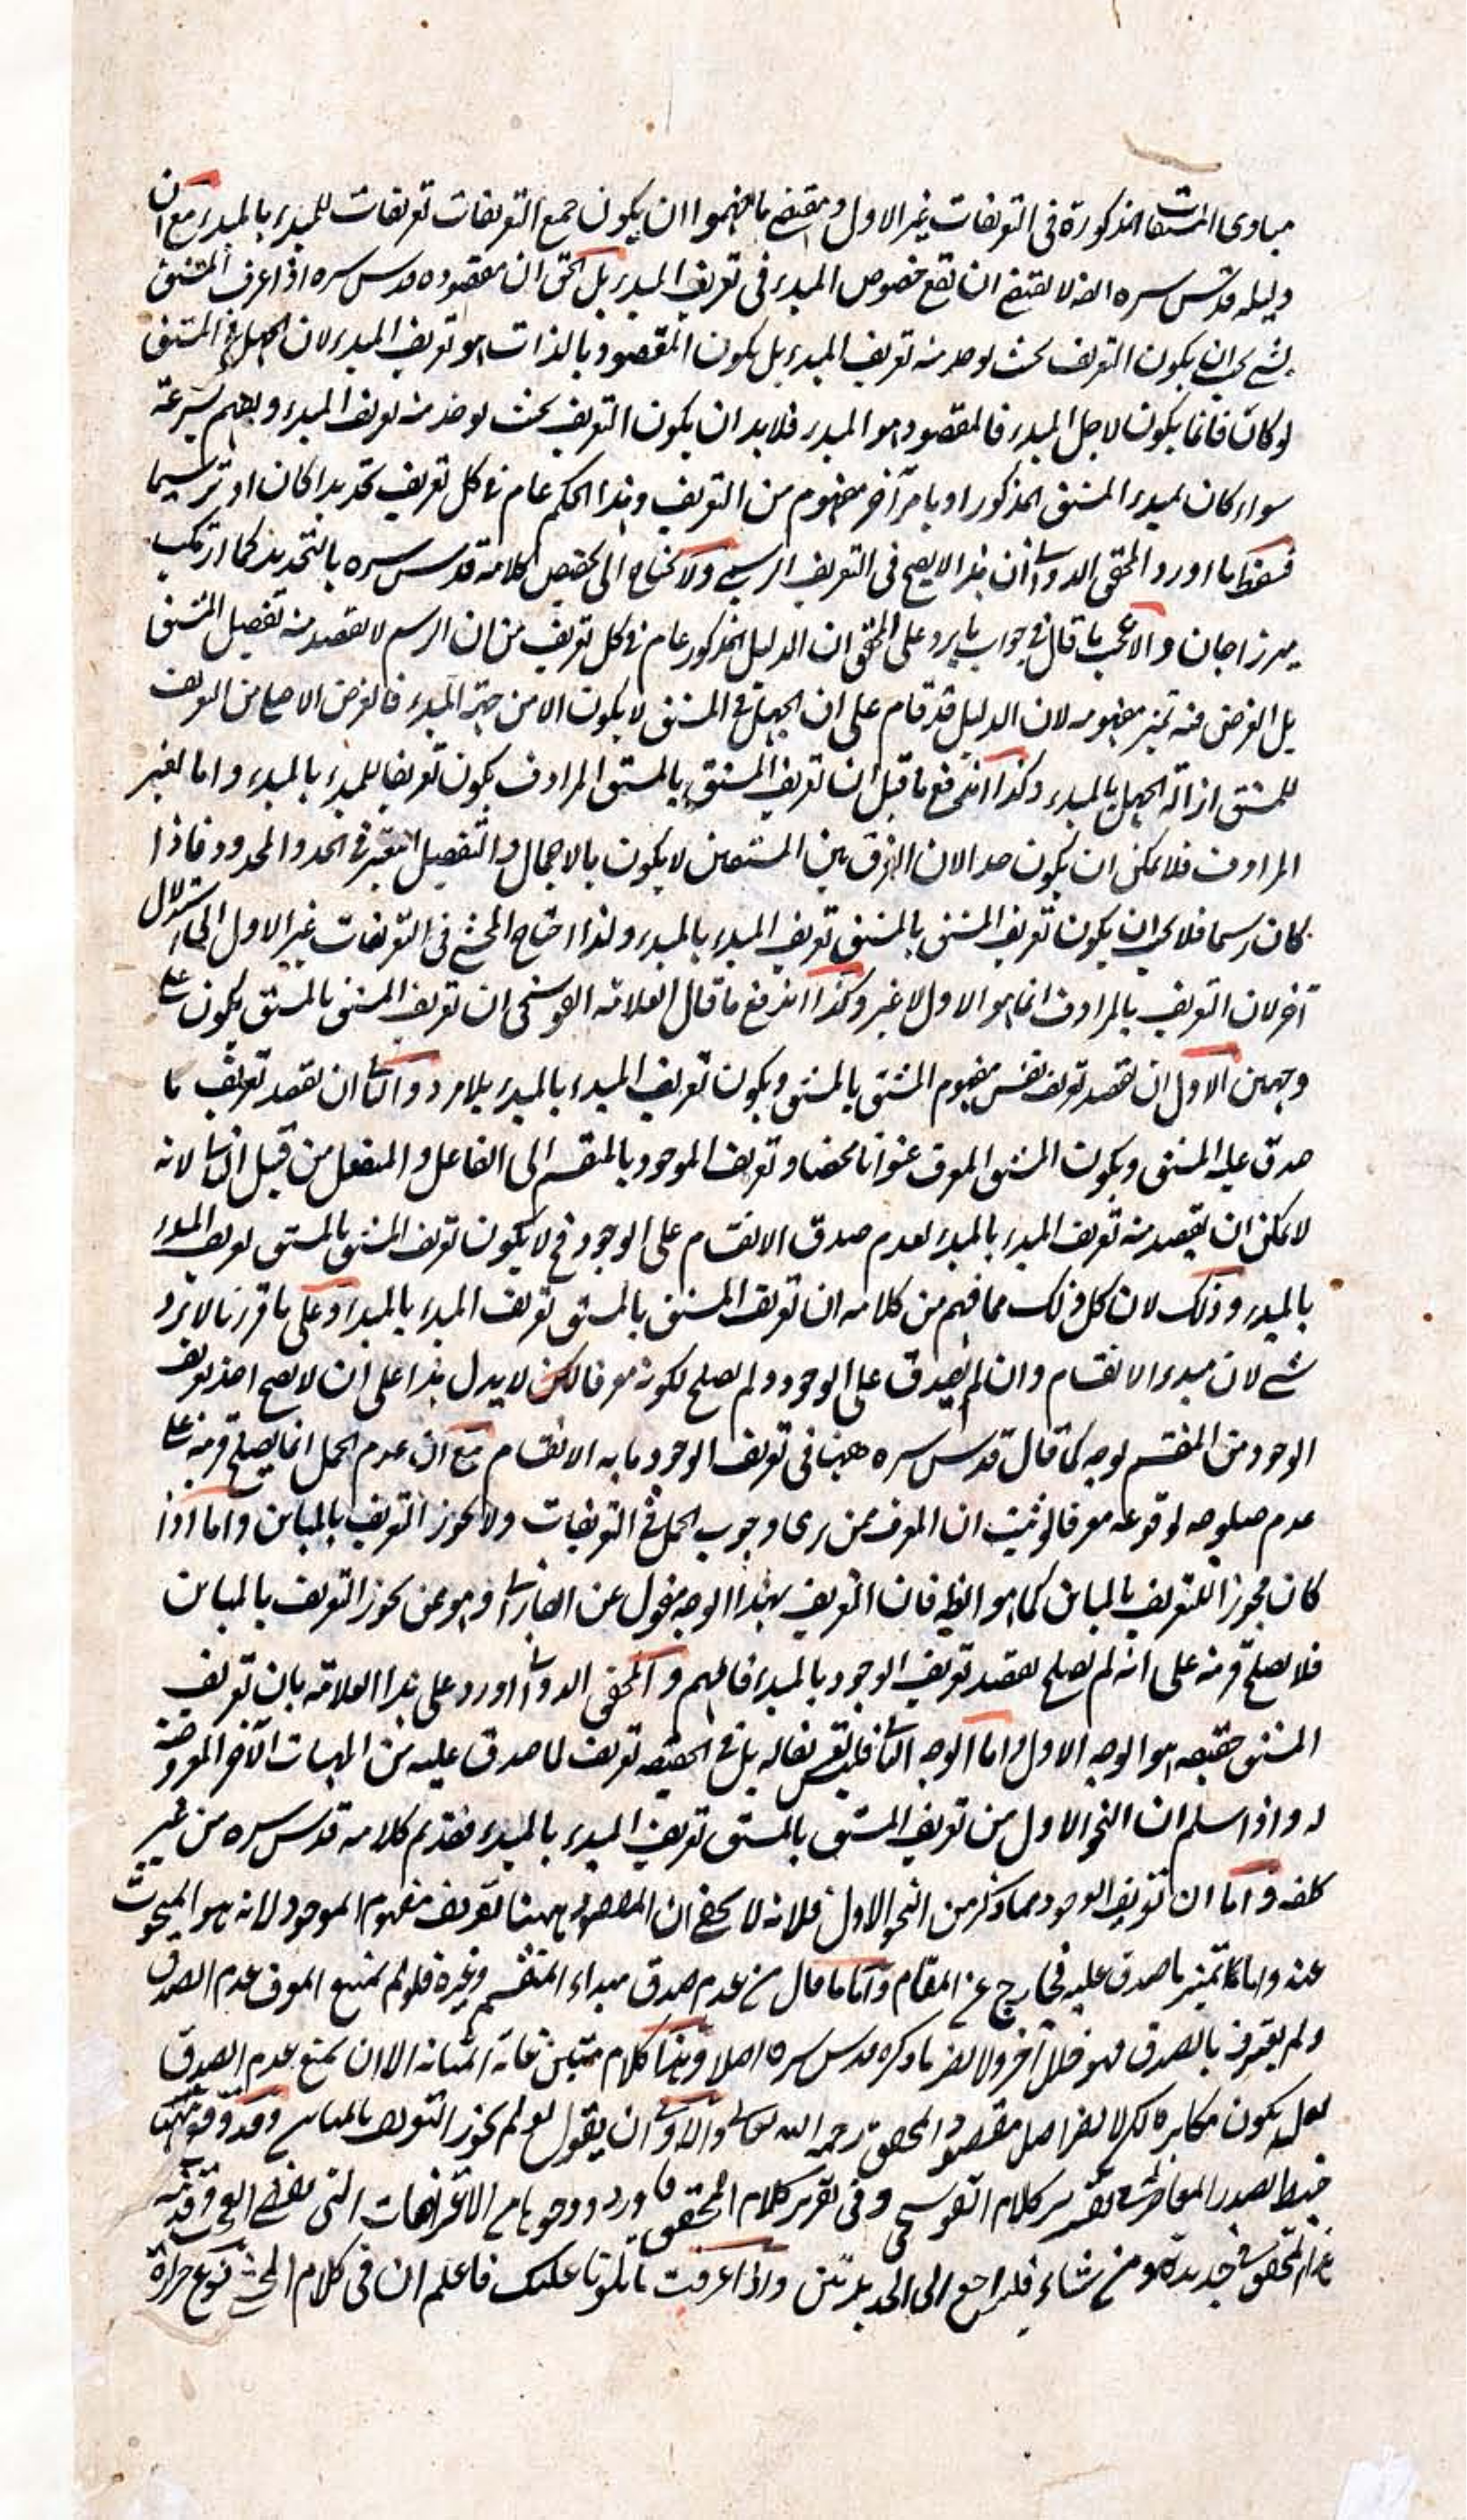 مبادى المشتقات المذكورة فى التعريفات غير الاول ومقتضى ما فهموا ان يكون جميع التعريفات تعريفات للمبدء بالمبدء مع ان
دليله قدس سره ايضا لا يقتضى ان تقع خصوص المبدء فى تعريف المبدء بل الحق ان مقصوده قدس سره اذا عرف المشتق
بشئ يجب ان يكون التعريف بحيث يوخذ منه تعريف المبدء بل يكون المقصود بالذات هو تعريف المبدء لان الجهل فى المشتق
لو كان فانما يكون لاجل المبدء فالمقصود هو المبدء فلا بد ان يكون التعريف بحيث يوخذ منه تعريف المبدء ويفهم شرعته
سواء كان لمبدء المشتق المذكور او بامر آخر مفهوم من التعريف وهذا الحكم عام فى كل تعريف تحديدا كان او ترسيما
فسقط ما اورد المحقق الدوانى ان هذا لا يصح فى التعريف الرسمى ولا يحتاج الى تخصيص كلامه قدس سره بالتحديد كما ارتكب
ميرزاجان والاعجب ما قال فى جواب ما يرد على المحقق ان الدليل المذكور عام فى كل تعريف من ان الرسم لا يقصد منه تفصيل المشتق
بل الغرض منه تميز مفهومه لان الدليل قد قام على ان الجهل فى المشتق لا يكون الا من جهة المبدء فالغرض الاصلى من التعريف
للمشتق ازالة الجهل بالمبدء وكذا اندفع ما قيل ان تعريف المشتق بالمشتق المرادف يكون تعريفا للمبدء بالمبدء واما لغير
المرادف فلا يمكن ان يكون حدا لان الفرق بين المشتقين لا يكون بالاجمال والتفصيل المعتبر فى الحد والمحدود فاذا
كان رسما فلا يجب ان يكون تعريف المشتق بالمشتق تعريف المبدء بالمبدء ولذا احتاج المحشى فى التعريفات غير الاول الى استدلال
آخر لان التعريف بالمرادف انما هو الاول لا غير وكذا اندفع ما قال العلامه القوشجى ان تعريف المشتق بالمشتق يكون على
وجهين الاول ان يقصد تعريف نفس مفهوم المشتق بالمشتق ويكون تعريف المبدء بالمبدء بلا مرد والثانى ان يقصد تعريف ما
صدق عليه المشتق ويكون المشتق المعرف عنوانا محضا وتعريف الموجود بالمنقسم الى الفاعل والمنفعل من قبيل الثانى لانه
لا يمكن ان يقصد منه تعريف المبدء بالمبدء لعدم صدق الانقسام على الوجود فح لا يكون تعريف المشتق بالمشتق تعريف المبدء
بالمبدء وذلك لان كل ذلك مما فهم من كلامه ان تعريف المشتق بالمشتق تعريف المبدء بالمبدء وعلى ما قررنا لا يرد
شئ لان مبدء الانقسام وان لم يصدق على الوجود ولم يصلح لكونه معرفا لكن لا يدل هذا على ان لا يصح اخذ تعريف
الوجود من المنقسم بوجه كما قال قدس سره ههنا فى تعريف الوجود ما به الانقسام مع ان عدم الحمل انما يصلح قرينة على
عدم صلوحه لوقوعه معرفا لو ثبت ان المعرف ممن يرى وجوب الحمل فى التعريفات ولا يجوز التعريف بالمباين واما اذا
كان مجوزا للتعريف بالمباين كما هو الظ فان التعريف بهذا الوجه منقول عن الفارابى وهو ممن يجوز التعريف بالمباين
فلا يصلح قرينة على انه لم يصلح لقصد تعريف الوجود بالمبدء فافهم والمحقق الدوانى اورد على هذا العلامه بان تعريف
المشتق حقيقه هو الوجه الاول واما الوجه الثانى فليس تعريفا له بل فى الحقيقه تعريف لما صدق عليه من المهيات الآخر المعروضة
له واذا سلم ان النحو الاول من تعريف المشتق بالمشتق تعريف المبدء بالمبدء فقد تم كلامه قدس سره من غير
كلفه واما ان تعريف الوجود مما ذكر من النحو الاول فلانه لا يخفى ان المقصود ههنا تعريف مفهوم الموجود لانه هو المبحوث
عنه واما تميز ما صدق عليه فخارج عن المقام واما ما قال من عدم صدق مبداء المنقسم وغيره فلو لم يمنع المعرف عدم الصدق
ولم يعترف بالصدق فهو خلل آخر ولا يضر ما ذكره قدس سره اصلا وهذا كلام متين غاية المتانه الا ان يمنع عدم الصدق
لعله يكون مكابره لكن لا يضر اصل مقصود المحقق رحمه الله تعالى والاولى ان يقول لو لم يجوز التعريف بالمباين وقد وقع ههنا
خبط لصدر المعاصر فى تقرير كلام القوشجى وفى تقرير كلام المحقق فاورد وجوها من الاعتراضات التى
المحقق فى جديده ومن شاء فليراجع الى الجديدتين واذا عرفت ما تلونا عليك فاعلم ان فى كلام المحشى نوع حزازة